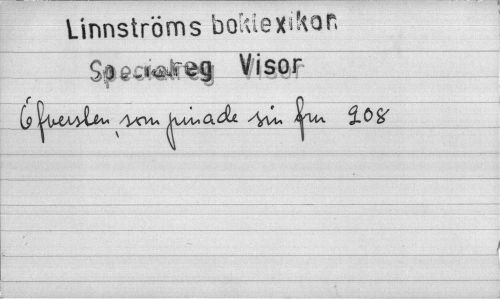 Linnströms boklexikon
Specialreg Visor
Öfversten, som pinade sin fru 208